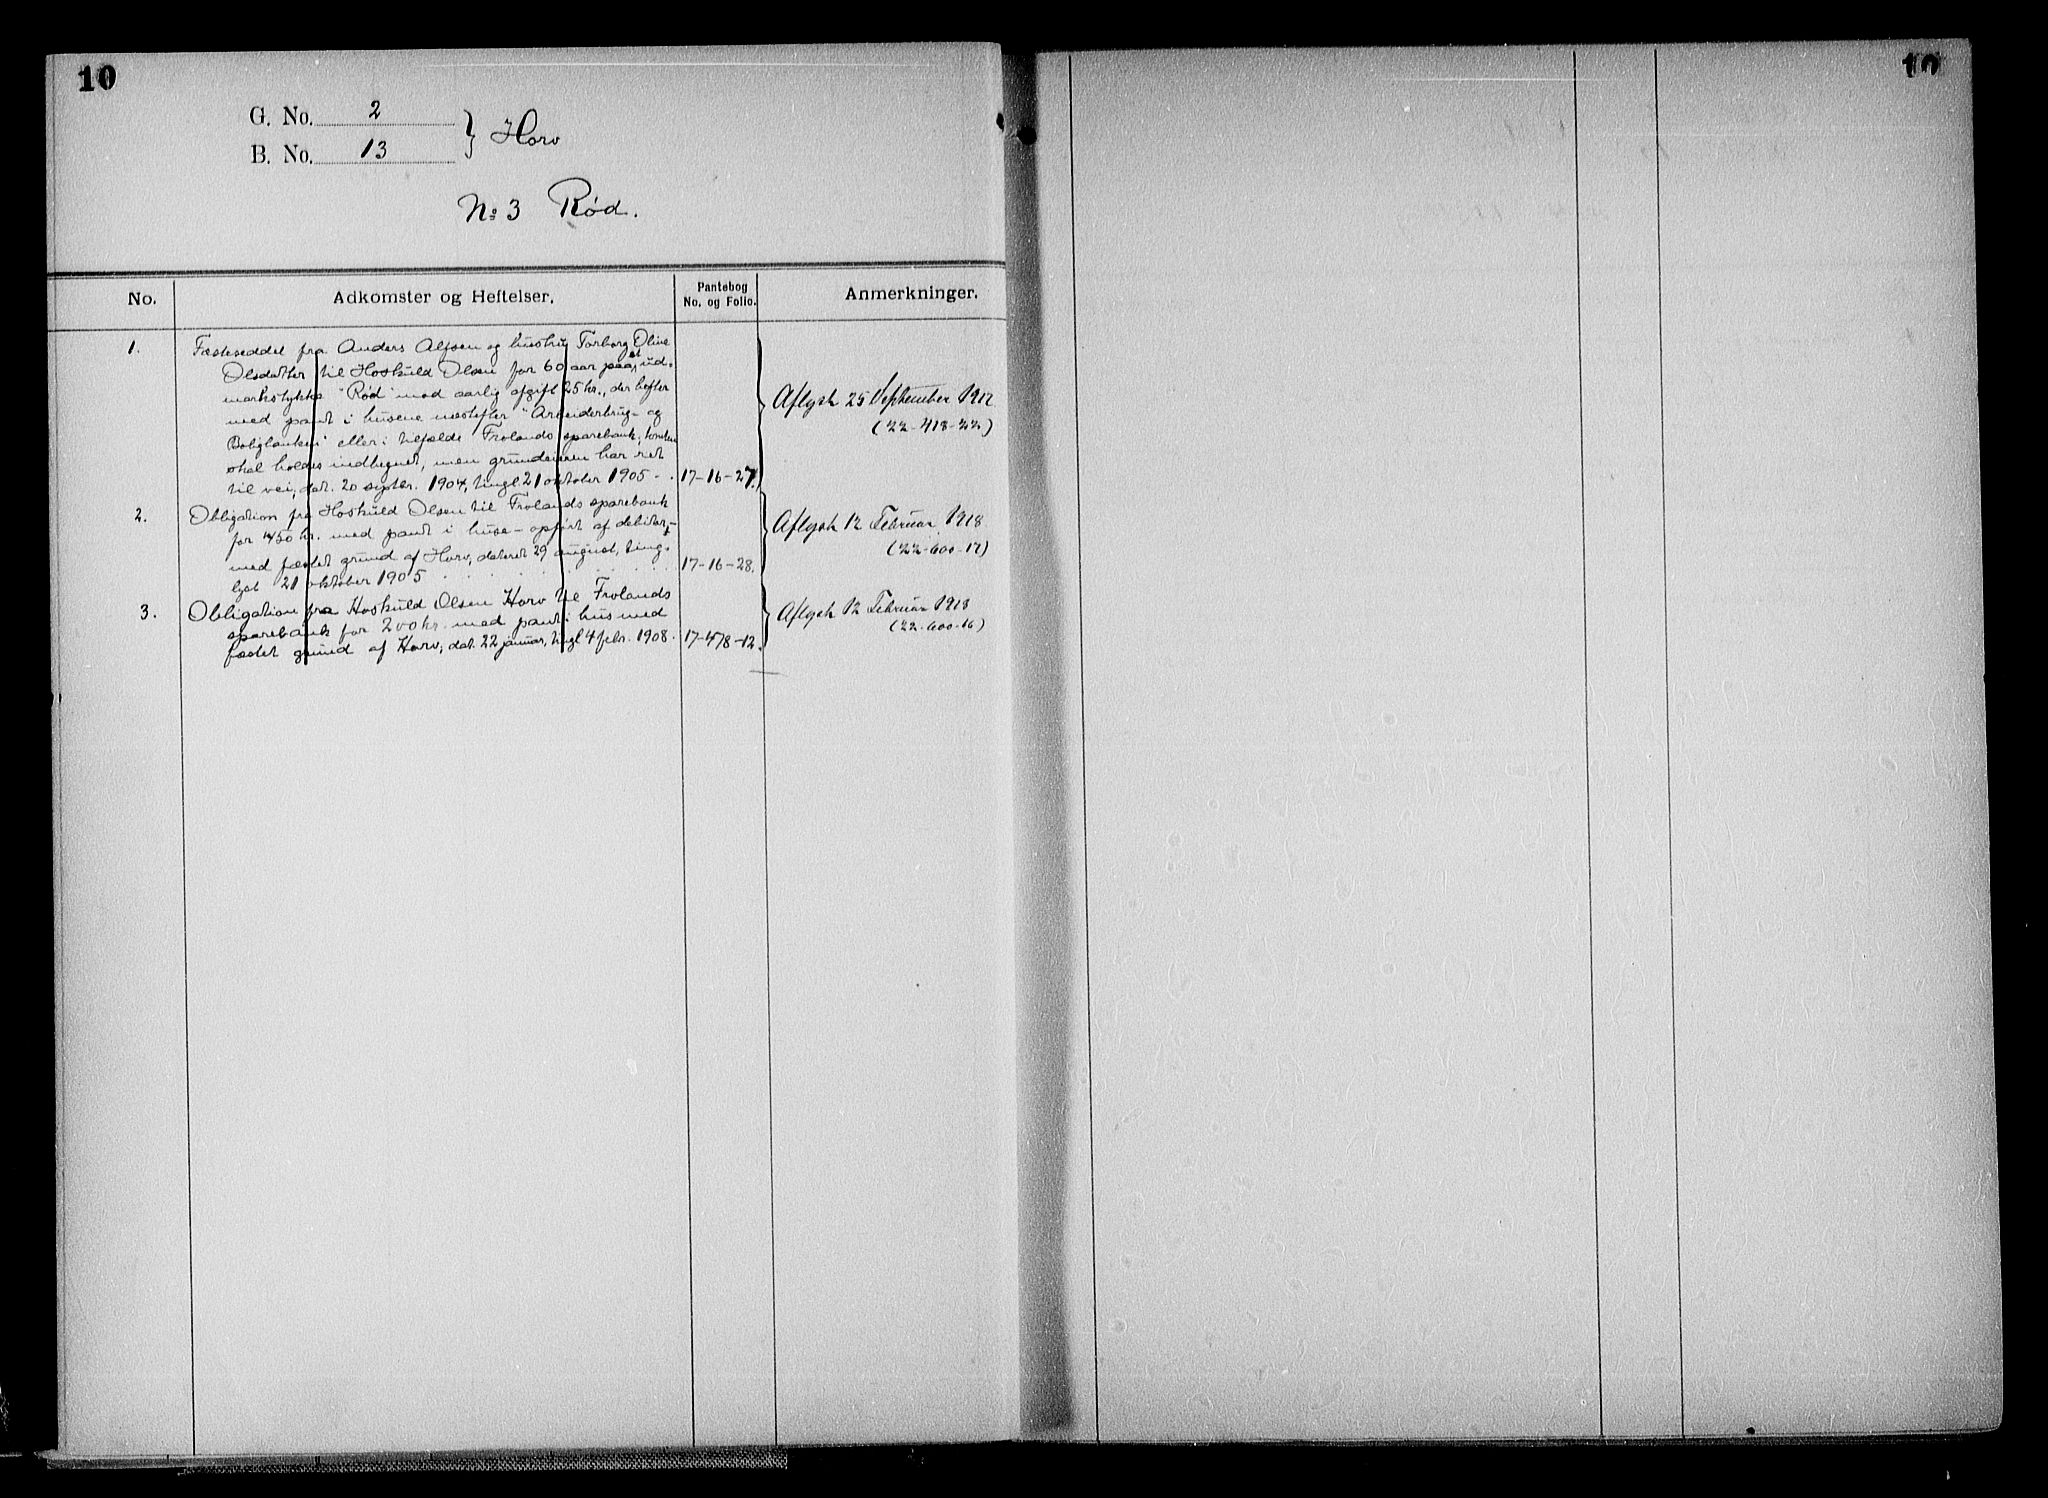 10
10
G. No. 2
B. No. 13
} Horv
No 3 Rød.
No.
Adkomster og Heftelser.
Pantebog
No. og Folio.
Anmerkninger.
1. Fæsteseddel fra Anders Alfsen og hustru Torborg Oline
Olsdatter til Hoskuld Olsen for 60 aar paa et ud-
markstykke "Rød" mod aarlig afgift 25 kr., der hefter
med pant i husene næstefter "Arbeiderbrug- og
Boligbanken" eller i tilfælde Frolands sparebank; tomten
skal holdes indhegnet, men grundeieren har ret
til vei, dat. 20 septbr. 1904, tingl 21 oktober 1905 - . 17-16-27.
Aflyst 25 September 1917
(22-418-22)
2. Obligation fra Hoskuld Olsen til Frolands sparebank
for 450 kr. med pant i huse opført af debitor,
med fæstet grund af Horv, dateret 29 august, ting-
lyst 21 oktober 1905 17-16-28.
Aflyst 12 Februar 1918
(22-600-17)
3. Obligation fra Hoskuld Olsen Horv til Frolands
sparebank for 200 kr. med pant i hus med
fæstet grund af Horv, dat. 22 januar, tingl 4 febr. 1908. 17-478-12.
Aflyst 12 Februar 1918
(22-600-16)